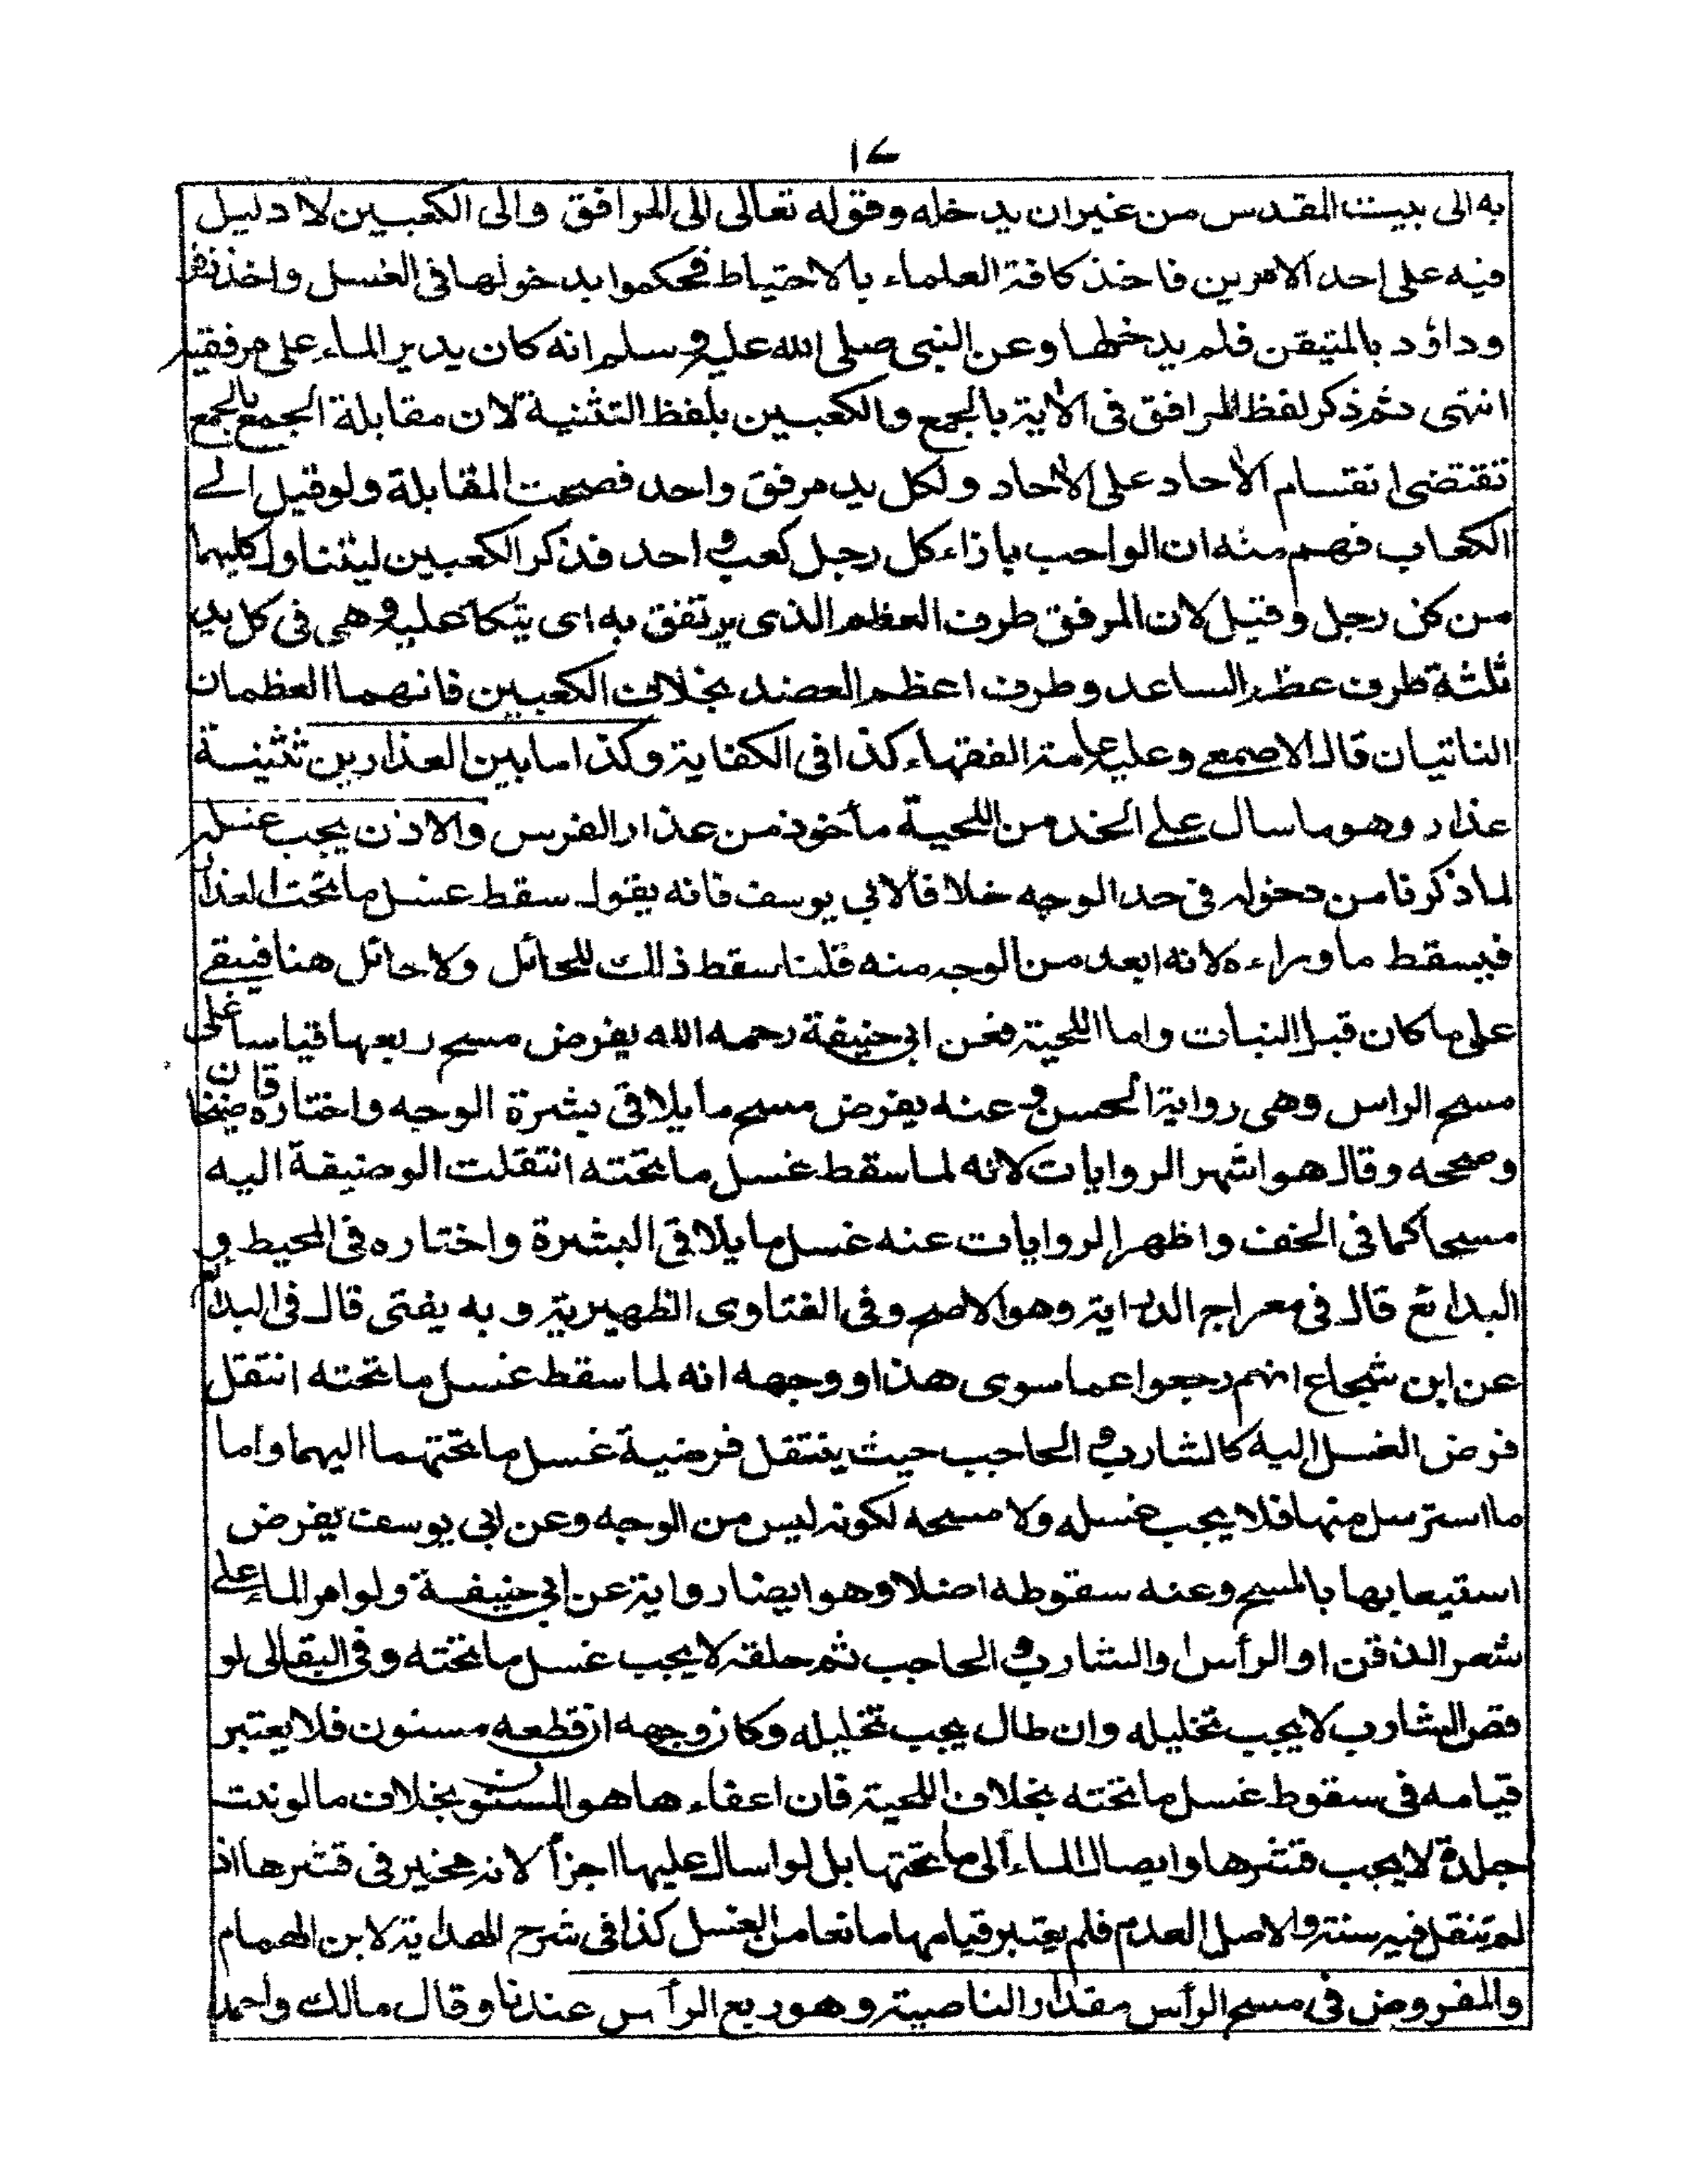 ١٤
به الى بيت المقدس من غير ان يدخله وقوله تعالى الى المرافق والى الكعبين لا دليل
فيه على احد الامرين فاخذ كافة العلماء بالاحتياط فحكموا بدخولها فى الغسل واخذ زفر
وداؤد بالمتيقن فلم يدخلها وعن النبى صلى الله عليه وسلم انه كان يدير الماء على مرفقيه
انتهى ثم ذكر لفظ المرافق فى الآية بالجمع والكعبين بلفظ التثنية لان مقابلة الجمع بالجمع
تقتضى انقسام الآحاد على الآحاد ولكل يد مرفق واحد فصحت المقابلة ولو قيل الے
الكعاب فهم منه ان الواجب بازاء كل رجل كعب واحد فذكر الكعبين ليتناول كليهما
من كل رجل وقيل لان المرفق طرف العظم الذى يرتفق به اى يتكأ عليه وهى فى كل يد
ثلثة طرف عظم الساعد وطرف اعظم العضد بخلاف الكعبين فانهما العظمان
الناتيان قال الاصمعى وعليه عامة الفقهاء كذا فى الكفاية وكذا ما بين العذارين تثنية
عذار وهو ما سال على الخد من اللحية مأخوذ من عذار الفرس والاذن يجب غسله
لما ذكرنا من دخوله فى حد الوجه خلافا لابى يوسف فانه يقول سقط غسل ما تحت العذار
فيسقط ما وراءه لانه ابعد من الوجه منه قلنا سقط ذلك للحائل ولا حائل هنا فيبقے
على ما كان قبل النبات واما اللحية فعن ابى حنيفة رحمه الله يفرض مسح ربعها قياسا على
مسح الراس وهى رواية الحسن وعنه يفرض مسح ما يلاقى بشرة الوجه واختاره قاضيخان
وصححه وقال هو اشهر الروايات لانه لما سقط غسل ما تحته انتقلت الوضيفة اليه
مسحا كما فى الخف واظهر الروايات عنه غسل ما يلاقى البشرة واختاره فى المحيط و
البدائع قال فى معراج الدراية وهو الاصح وفى الفتاوى الظهيرية وبه يفتى قال فى البدائع
عن ابن شجاع انهم رجعوا عما سوى هذا ووجهه انه لما سقط غسل ما تحته انتقل
فرض الغسل اليه كالشارب والحاجب حيث ينتقل فرضية غسل ما تحتهما اليهما واما
ما استرسل منها فلا يجب غسله ولا مسحه لكونه ليس من الوجه وعن ابى يوسف يفرض
استيعابها بالمسح وعنه سقوطه اصلا وهو ايضا رواية عن ابى حنيفة ولو امر الماء على
شعر الذقن او الرأس او الشارب والحاجب ثم حلقه لا يجب غسل ما تحته وفى البقالى لو
قص الشارب لا يجب تخليله وان طال يجب تخليله وكان وجهه ان قطعه مسنون فلا يعتبر
قيامه فى سقوط غسل ما تحته بخلاف اللحية فان اعفاءها هو المسنون بخلاف ما لو نبتت
جلدة لا يجب قشرها وايصال الماء الى ما تحتها بل لو اسال عليها اجزأ لانه مخير فى قشرها اذ
لم تنقل فيه سنة والاصل العدم فلم يعتبر قيامها مانعا من الغسل كذا فى شرح الهداية لابن الهمام
والمفروض فى مسح الرأس مقدار الناصية وهو ربع الرأس عندنا وقال مالك واحمد